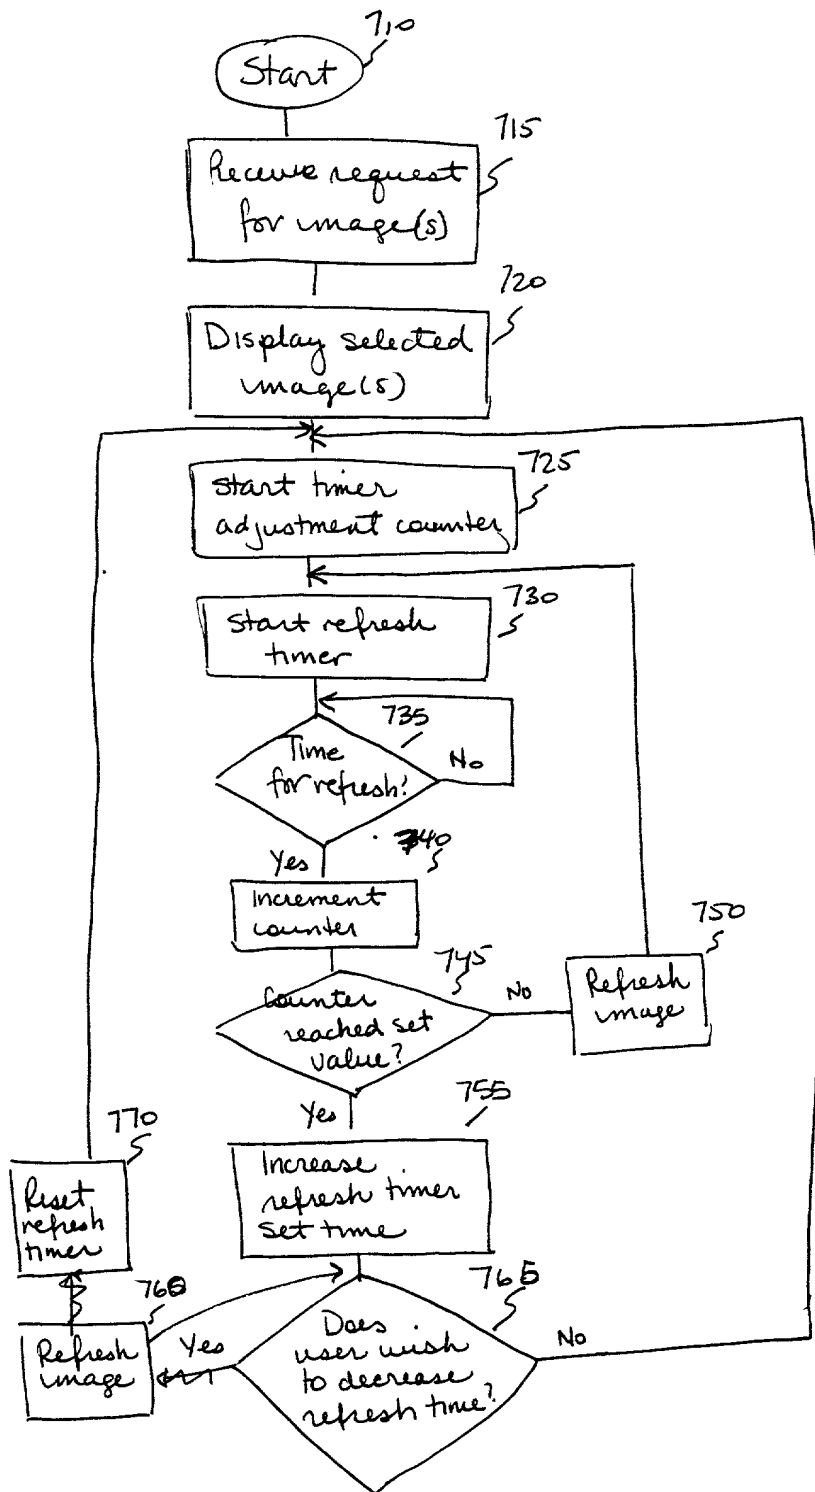 710
Start
715
Receive request
for image(s)
720
Display selected
image(s)
725
Start timer
adjustment counter
730
Start refresh
timer
735
Time
for refresh?
No
Yes
740
Increment
counter
745
Counter
reached set
value?
No
750
Refresh
image
Yes
755
Increase
refresh timer
set time
770
Reset
refresh
timer
760
Refresh
image
Yes
765
Does
user wish
to decrease
refresh time?
No